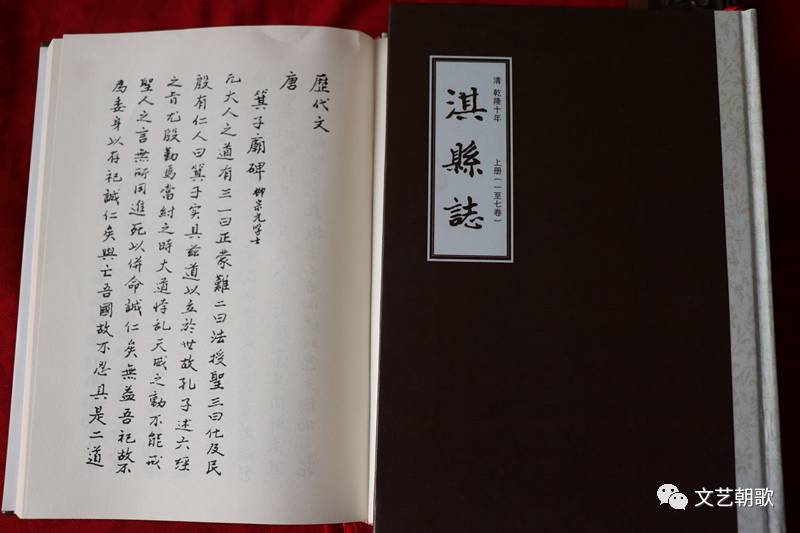 歷代文
唐
箕子廟碑 柳宗元学士
凡大人之道有三一曰正蒙難二曰法授聖三曰化及民
殷有仁人曰箕子實具茲道以立於世故孔子述六經
之旨尤殷勤焉當紂之時大道悖乱天威之動不能戒
聖人之言無所用進死以併命誠仁矣無益吾祀故不
為委身以存祀誠仁矣與亡吾國故不忍具是二道
清 乾隆十年 上册（一至七卷）
淇縣誌
文艺朝歌